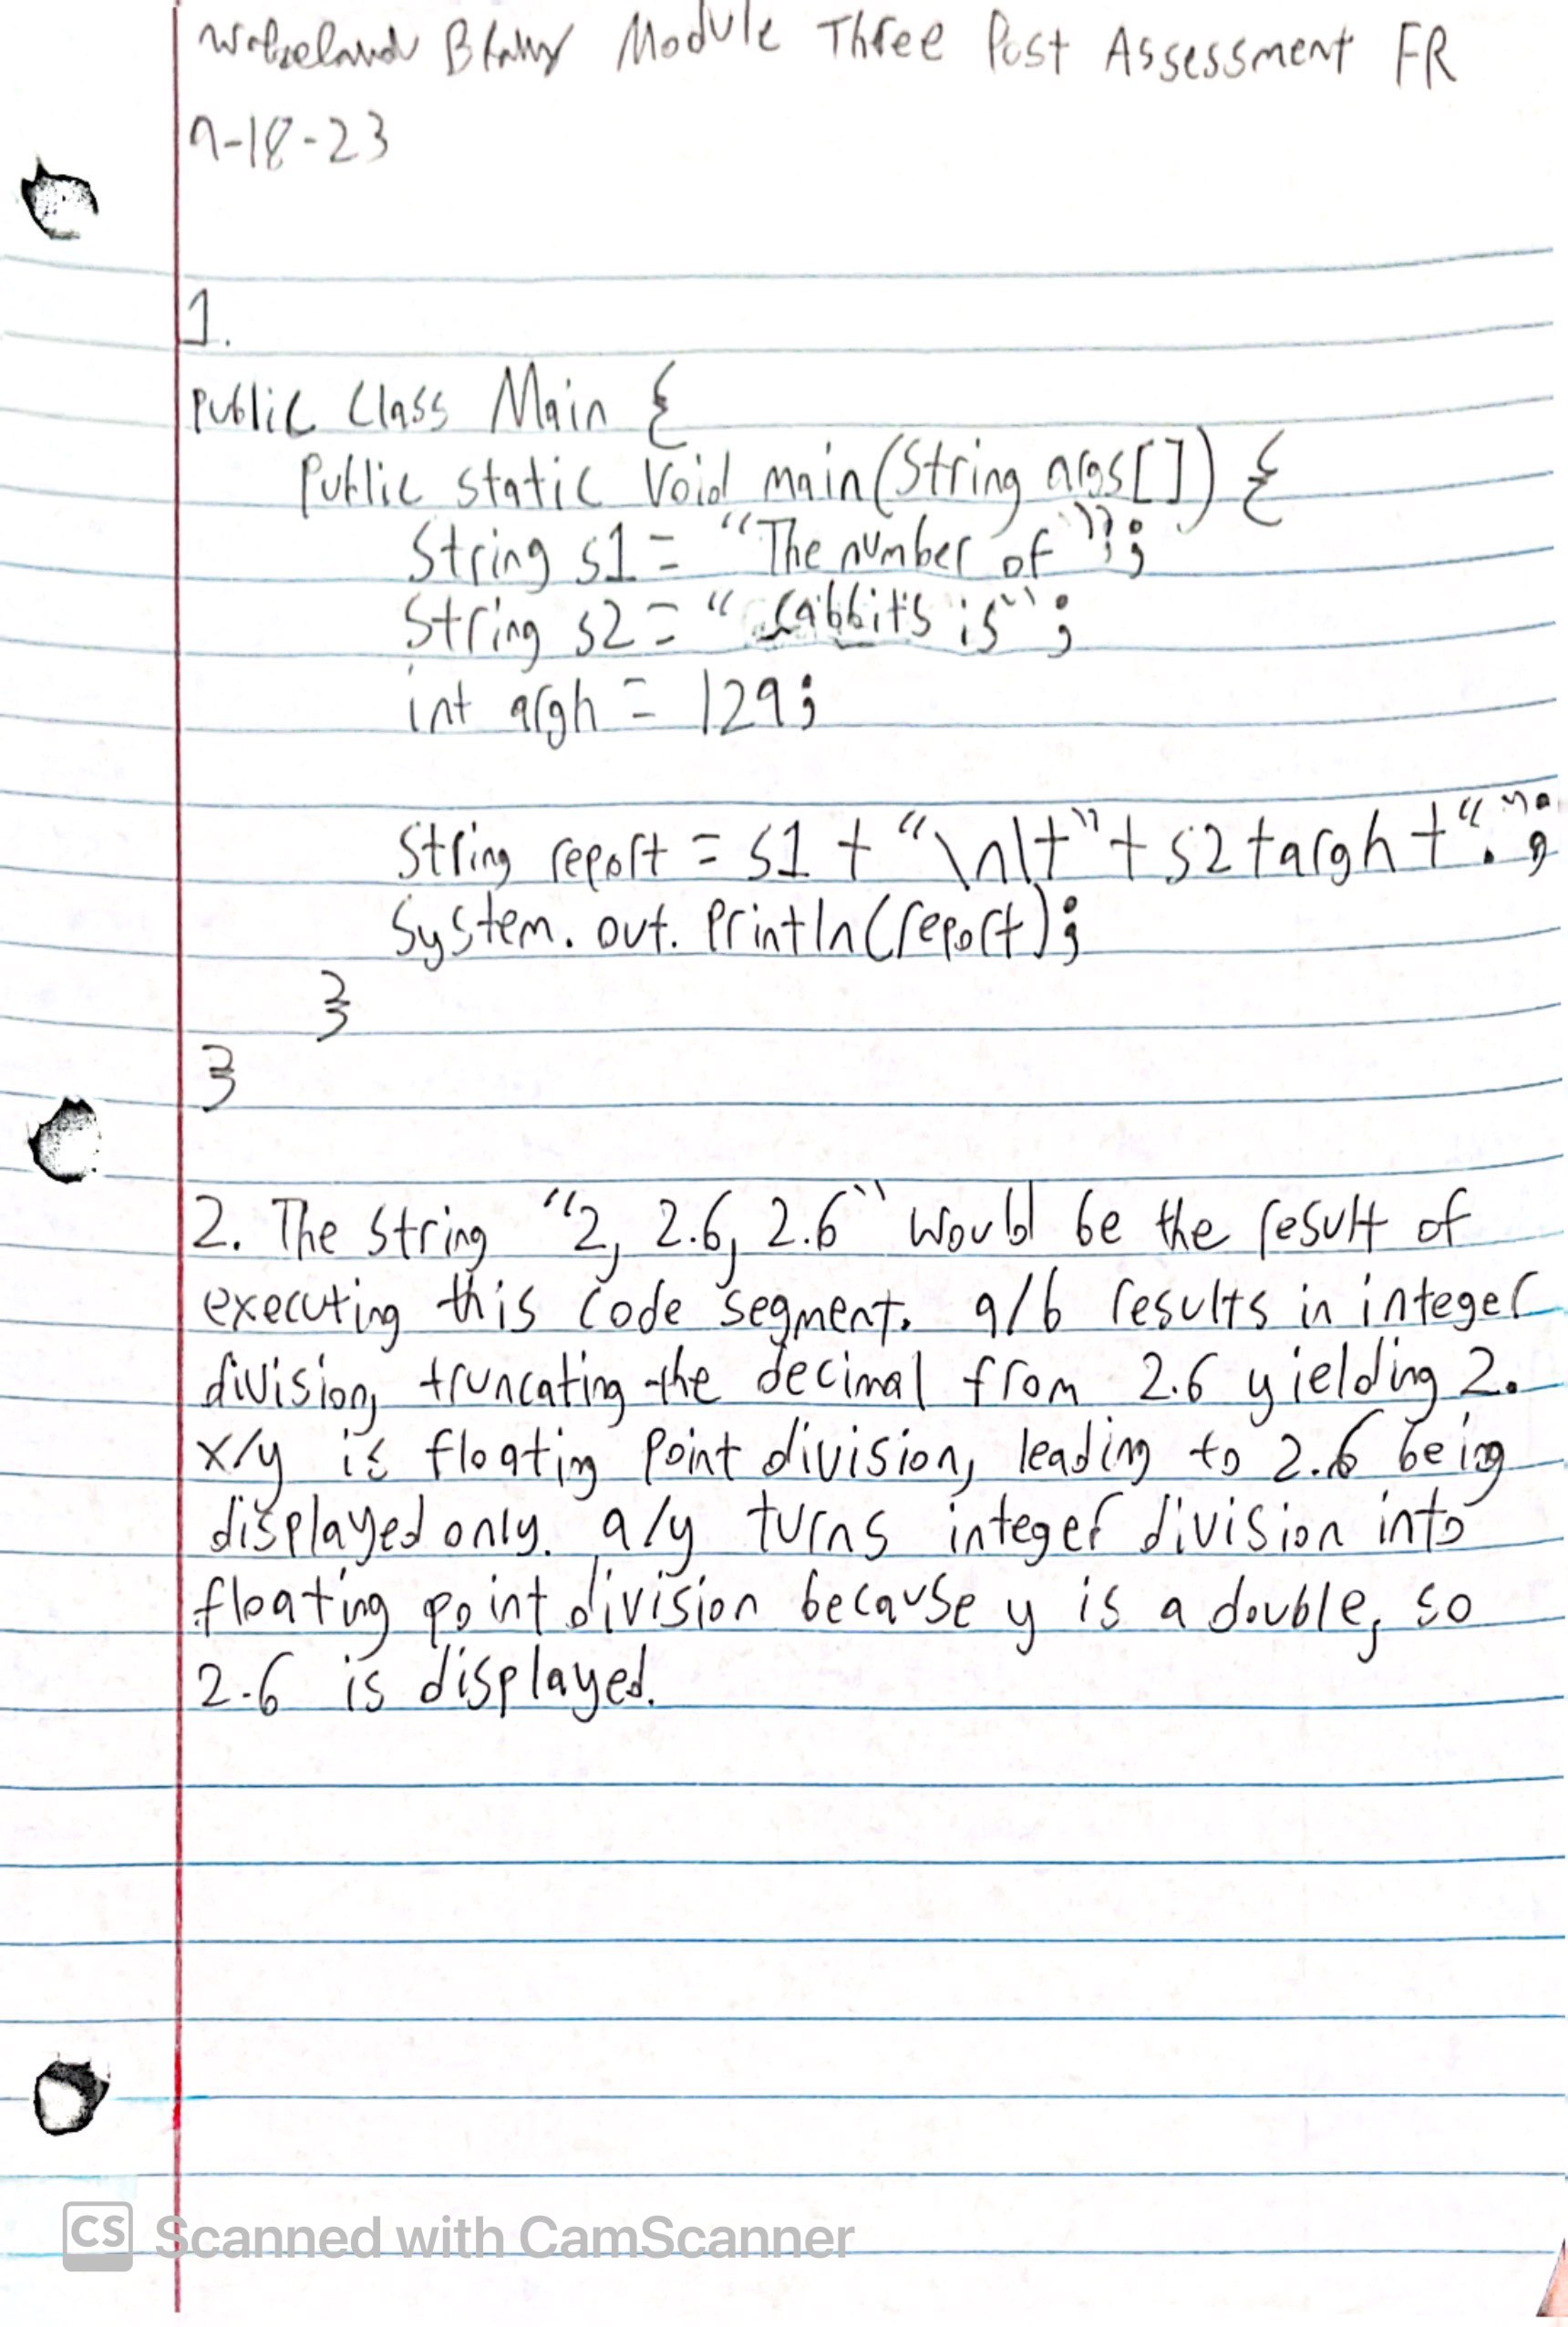 Module Three Post Assessment FR
9-18-23
1.
Public Class Main {
Public static Void main(String args[]) {
String s1 = "The number of";
String s2 = " rabbits is";
int argh = 129;
String report = s1 + "\n\t" + s2 + argh + ".";
System.out.Println(report);
}
}
2. The String "2, 2.6, 2.6" Would be the result of
executing this code segment. a/b results in integer
division, truncating the decimal from 2.6 yielding 2.
x/y is floating point division, leading to 2.6 being
displayed only. a/y turns integer division into
floating point division because y is a double, so
2.6 is displayed.
CS Scanned with CamScanner